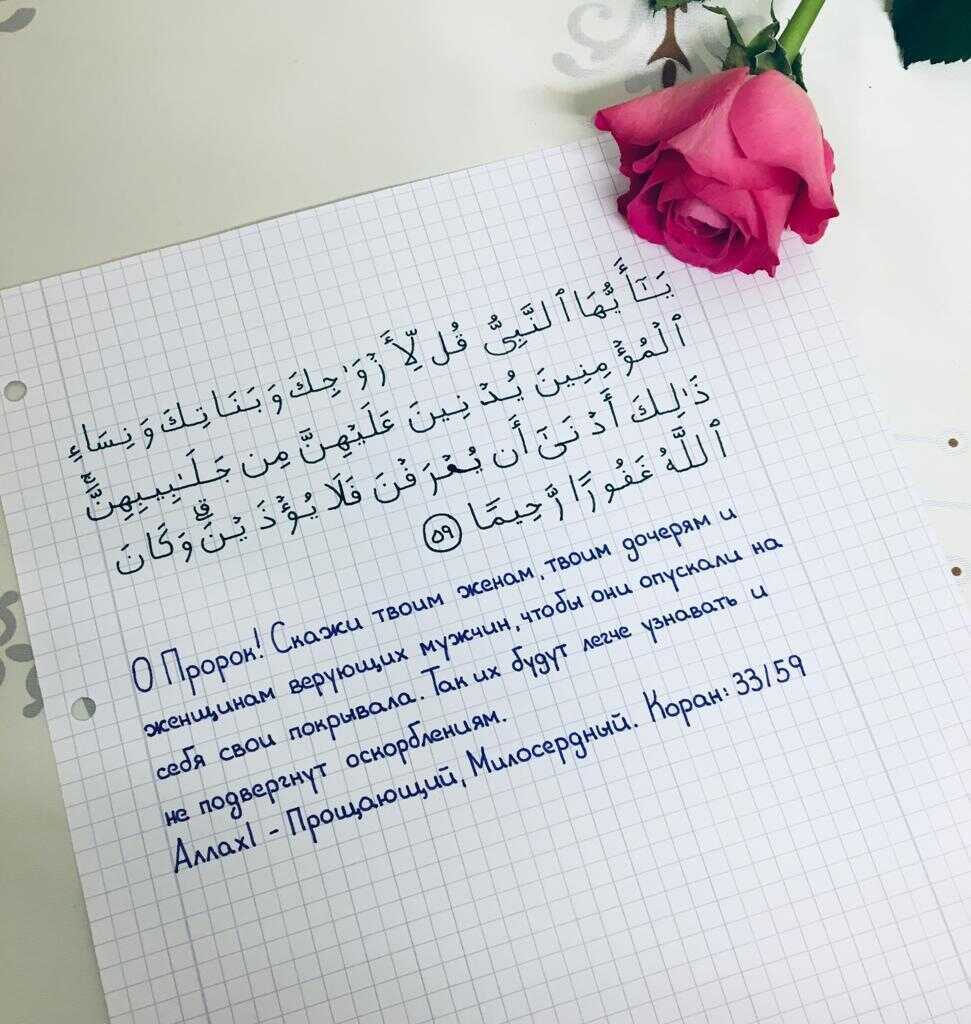 يَـٰٓأَيُّهَا ٱلنَّبِىُّ قُل لِّأَزۡوَٰجِكَ وَبَنَاتِكَ وَنِسَاءِ
ٱلۡمُؤۡمِنِينَ يُدۡنِينَ عَلَيۡهِنَّ مِن جَلَـٰبِيبِهِنَّۚ
ذَٰلِكَ أَدۡنَىٰٓ أَن يُعۡرَفۡنَ فَلَا يُؤۡذَيۡنَۗ وَكَانَ
ٱللَّهُ غَفُورًا رَّحِيمًا ٥٩
О Пророк! Скажи твоим женам, твоим дочерям и
женщинам верующих мужчин, чтобы они опускали на
себя свои покрывала. Так их будут легче узнавать и
не подвергнут оскорблениям.
АллахӀ - Прощающий, Милосердный. Коран: 33/59